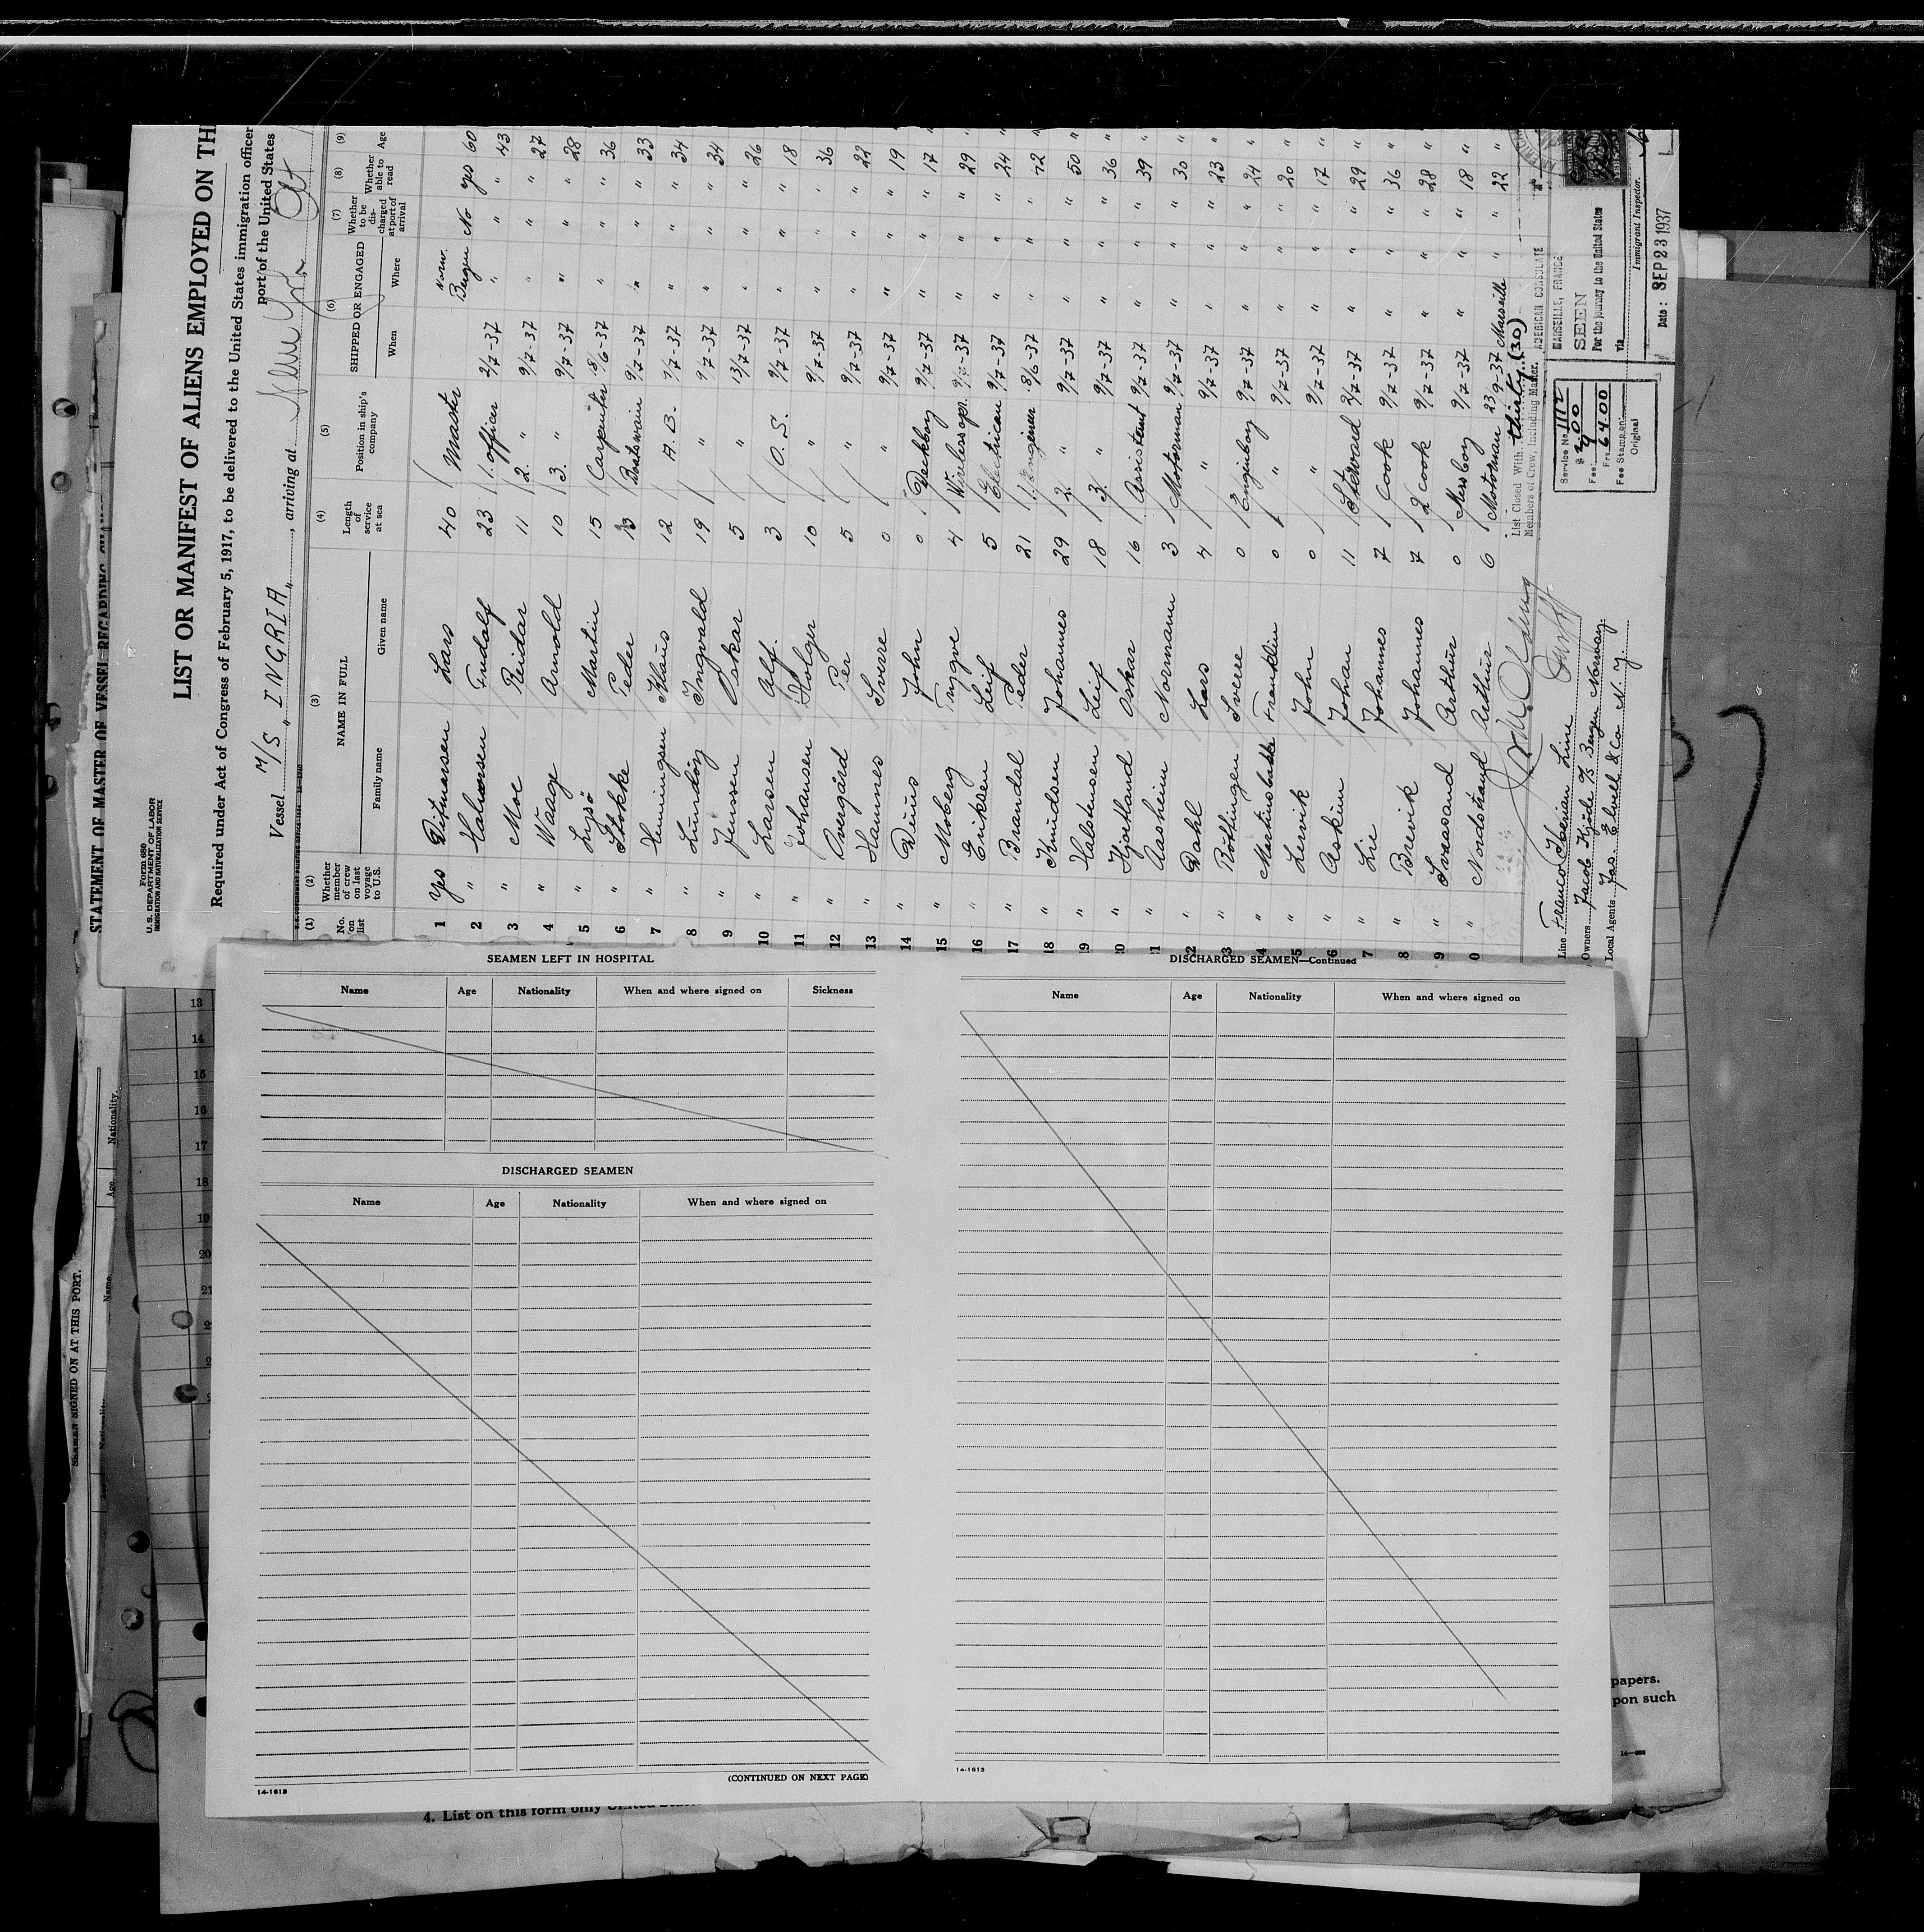 STATEMENT OF MASTER OF VESSEL REGARDING
Form 680
U.S. DEPARTMENT OF LABOR
IMMIGRATION AND NATURALIZATION SERVICE
LIST OR MANIFEST OF ALIENS EMPLOYED ON TH
Required under Act of Congress of February 5, 1917, to be delivered to the United States immigration officer
port of the United States
Vessel M/S "INGRIA", arriving at New York Oct
(1) (2) (3) (4) (5) (6) (7) (8) (9)
No. on list Whether member of crew on last voyage to U.S. NAME IN FULL Length of service at sea Position in ship's company SHIPPED OR ENGAGED Whether to be discharged at port of arrival Whether able to read Age
Family name Given name When Where
1 Yes Ditmarsen Lars 40 Master Norw. Bergen No yes 60
2 " Halvorsen Fridalf 23 1. officer 2/7-37 " " " 43
3 " Moe Reidar 11 2. " 9/7-37 " " " 27
4 " Waage Arnold 10 3. " 9/7-37 " " " 28
5 " Lysö Martin 15 Carpenter 8/6-37 " " " 36
6 " Stokke Peder 13 Boatswain 9/7-37 " " " 33
7 " Henningsen Klaus 12 A.B. 7/7-37 " " " 34
8 " Lundöy Ingvald 19 " 9/7-37 " " " 34
9 " Jenssen Oskar 5 " 13/7-37 " " " 26
10 " Larsen Alf. 3 O.S. 9/7-37 " " " 18
11 " Johansen Holger 10 " 9/7-37 " " " 36
12 " Overgård Per 5 " 9/7-37 " " " 22
13 " Hannes Sverre 0 " 9/7-37 " " " 19
14 " Duus John 0 Deckboy 9/7-37 " " " 17
15 " Moberg Yngve 4 Wireless opr. 9/7-37 " " " 29
16 " Eriksen Leif 5 Electrican 9/7-37 " " " 24
17 " Brandal Peder 21 1. Engineer 8/6-37 " " " 42
18 " Knudsen Johannes 29 2. " 9/7-37 " " " 50
19 " Halstensen Leif 18 3. " 9/7-37 " " " 36
20 " Hjortland Oskar 16 Assistent 9/7-37 " " " 39
21 " Aasheim Normann 3 Motorman 9/7-37 " " " 30
22 " Dahl Lars 4 " 9/7-37 " " " 23
23 " Röttingen Sverre 0 Enginboy 9/7-37 " " " 24
24 " Martinsbakke Franklin 0 " 9/7-37 " " " 20
5 " Lervik John 0 " 9/7-37 " " " 17
6 " Askeim Johan 11 Steward 2/7-37 " " " 29
7 " Lie Johannes 7 Cook 9/7-37 " " " 36
8 " Brevik Johannes 7 2 Cook 9/7-37 " " " 28
9 " Sveasand Arthur 0 Messboy 9/7-37 " " " 18
0 " Nordstrand Arthur 6 Motorman 23/9-37 Marseille " " 22
List Closed With thirty (30)
Members of Crew, Including Master.
AMERICAN CONSULATE
MARSEILLE, FRANCE
SEEN
For the journey to the United States
via
Service No. 1112
Fee: $2.00
Frs. 64.00
Fee Stamped:
Original
Date: SEP 23 1937
Immigrant Inspector.
Line Franco Iberian Line
Owners Jacob Kjöde A/S Bergen Norway
Local Agents Jas. Elwell & Co N.Y.
SEAMEN LEFT IN HOSPITAL
Name Age Nationality When and where signed on Sickness
DISCHARGED SEAMEN
Name Age Nationality When and where signed on
(CONTINUED ON NEXT PAGE)
14-1613
DISCHARGED SEAMEN—Continued
Name Age Nationality When and where signed on
14-1613
13
14
15
16
17
18
19
20
21
SEAMEN SIGNED ON AT THIS PORT.
Name Age Nationality.
papers.
pon such
4. List on this form only United